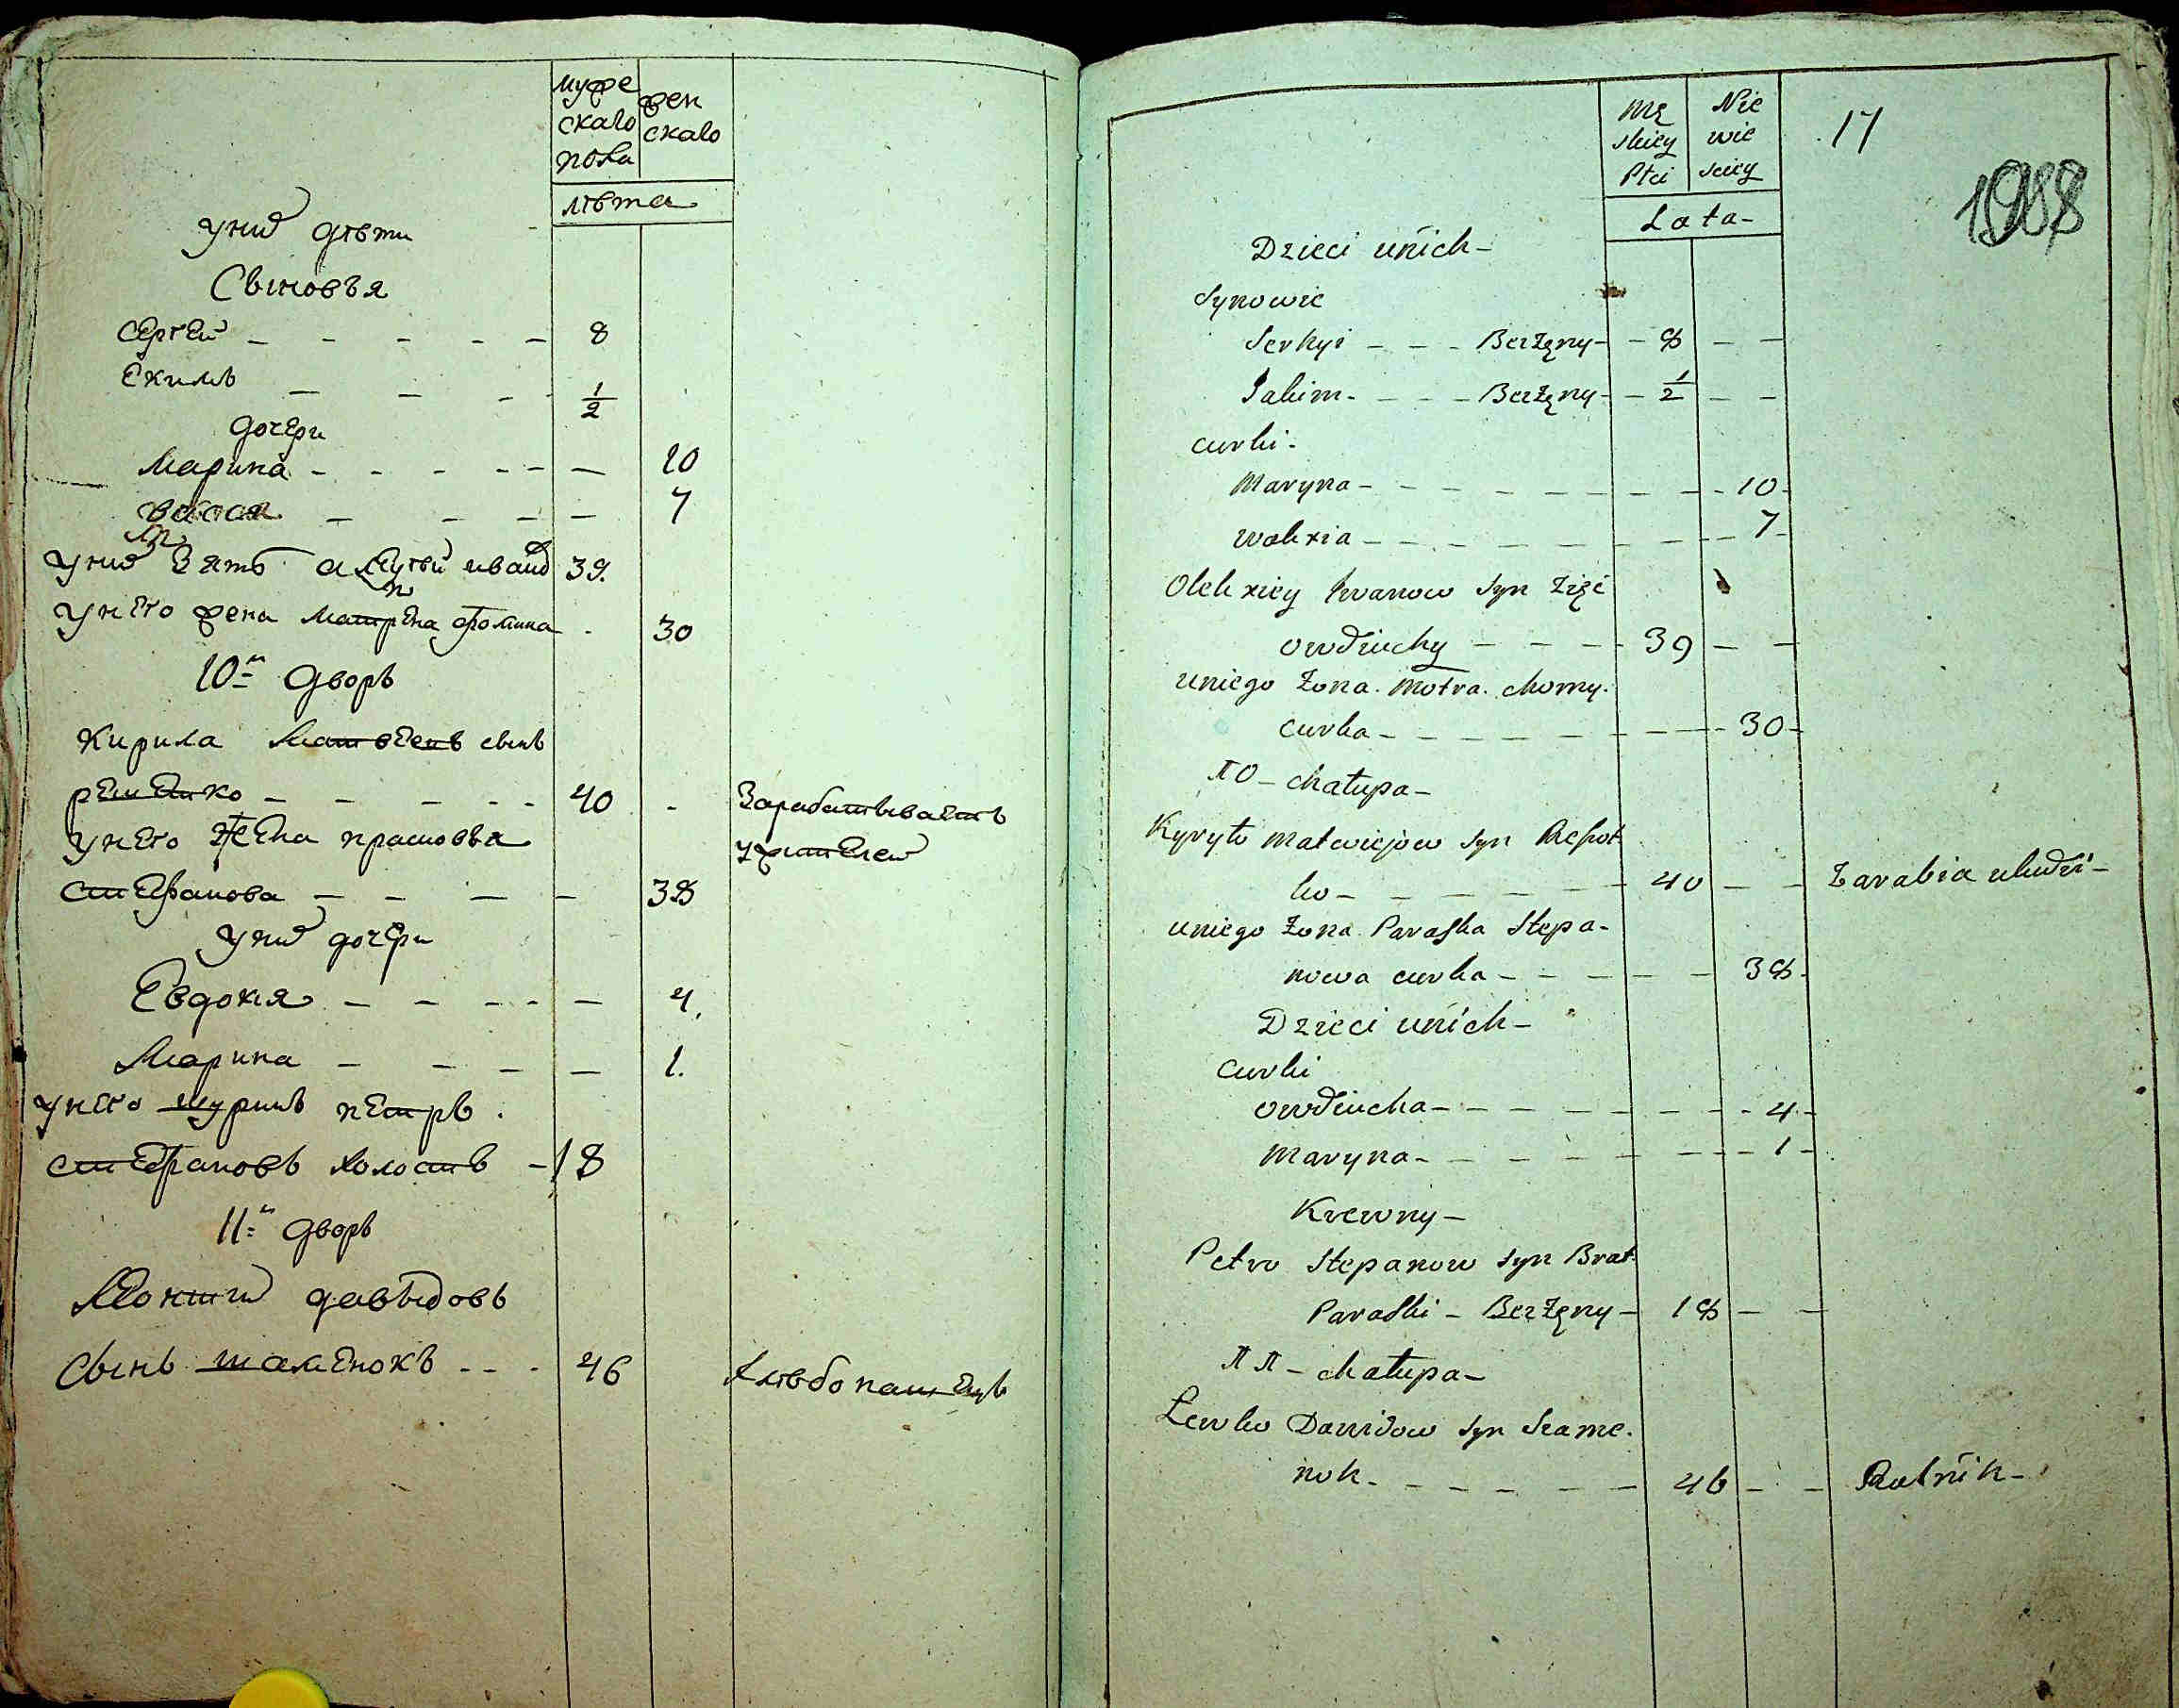 муже
скаго
пола
жен
скаго
лѣта
у них дѣти
Сыновья
Сергей - - - - - 8
Екимъ - - - 1/2
дочери
Марина - - - - - - 10
васса - - - - 7
у них зять алексей иванов 39.
у него жена матрена фомина - 30
10й дворъ
Кирила Матвеевъ сынъ
решетко - - - - - 40 - Зарабатываетъ
у него жена прасковья у жителей
степанова - - - - 38
у них дочери
Евдокия - - - - - 4.
Марина - - - - 1.
у него шуринъ петръ
степановъ холостъ - 18
11й дворъ
Леонтий давыдовъ
сынъ шаменокъ - - - 46 Хлѣбопашецъ
Mę
skiey
Płci
Nie
wie
sciey
Lata -
17
Dzieci unich -
Synowie
Serhyi - - - Bezżęny - - 8 - -
Jakim - - - - Bezżęny - - 1/2 - -
curki -
Maryna - - - - - - - - - 10 -
Wakxia - - - - - - - - - 7 -
Olekxiey Iwanow syn Zięć
owdiuchy - - - - 39 - -
uniego żona. Motra. chomy.
curka - - - - - - - - - 30 -
10 - chałupa -
Kyryło Matwiejow syn Reszot
ko - - - - - - - 40 - - Zarabia uludzi -
uniego żona Paraska Stepa -
nowa curka - - - - - 38 -
Dzieci unich -
Curki
owdiucha - - - - - - - - 4 -
Maryna - - - - - - - - 1 -
Krewny -
Petro Stepanow syn Brat
Paraski - Bezżęny - 18 - -
11 - chałupa -
Lewko Dawidow syn Szame -
nok - - - - - - 46 - - Rolnik -